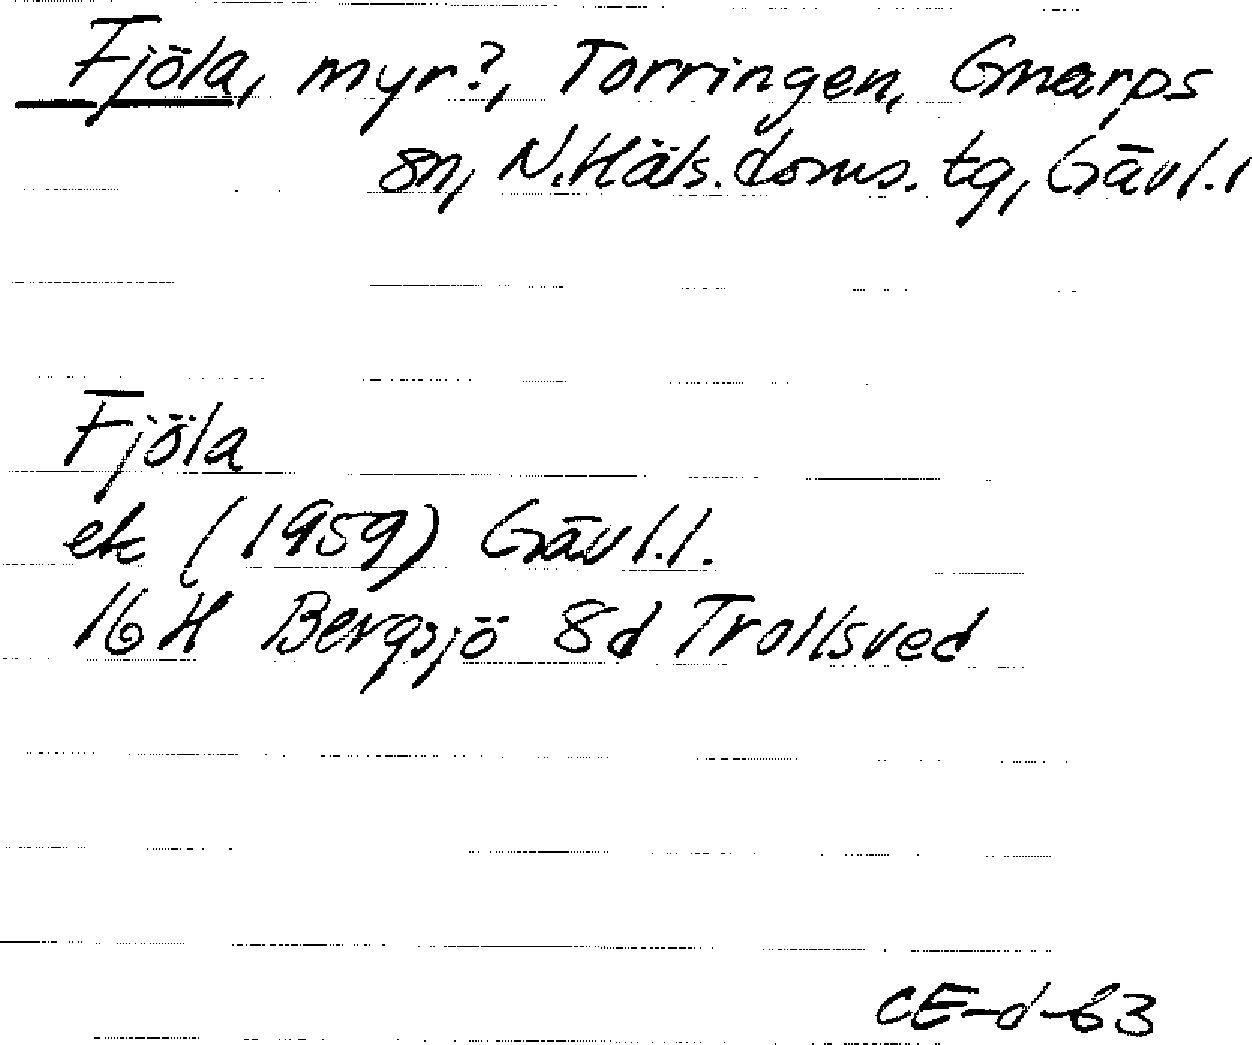 Fjöla, myr?, Torringen, Gnarps
sn, N. Häls. doms. tg, Gävl. l
Fjöla
ek (1959) Gävl. l.
16 H Bergsjö 8d Trollsved
CE-d-63